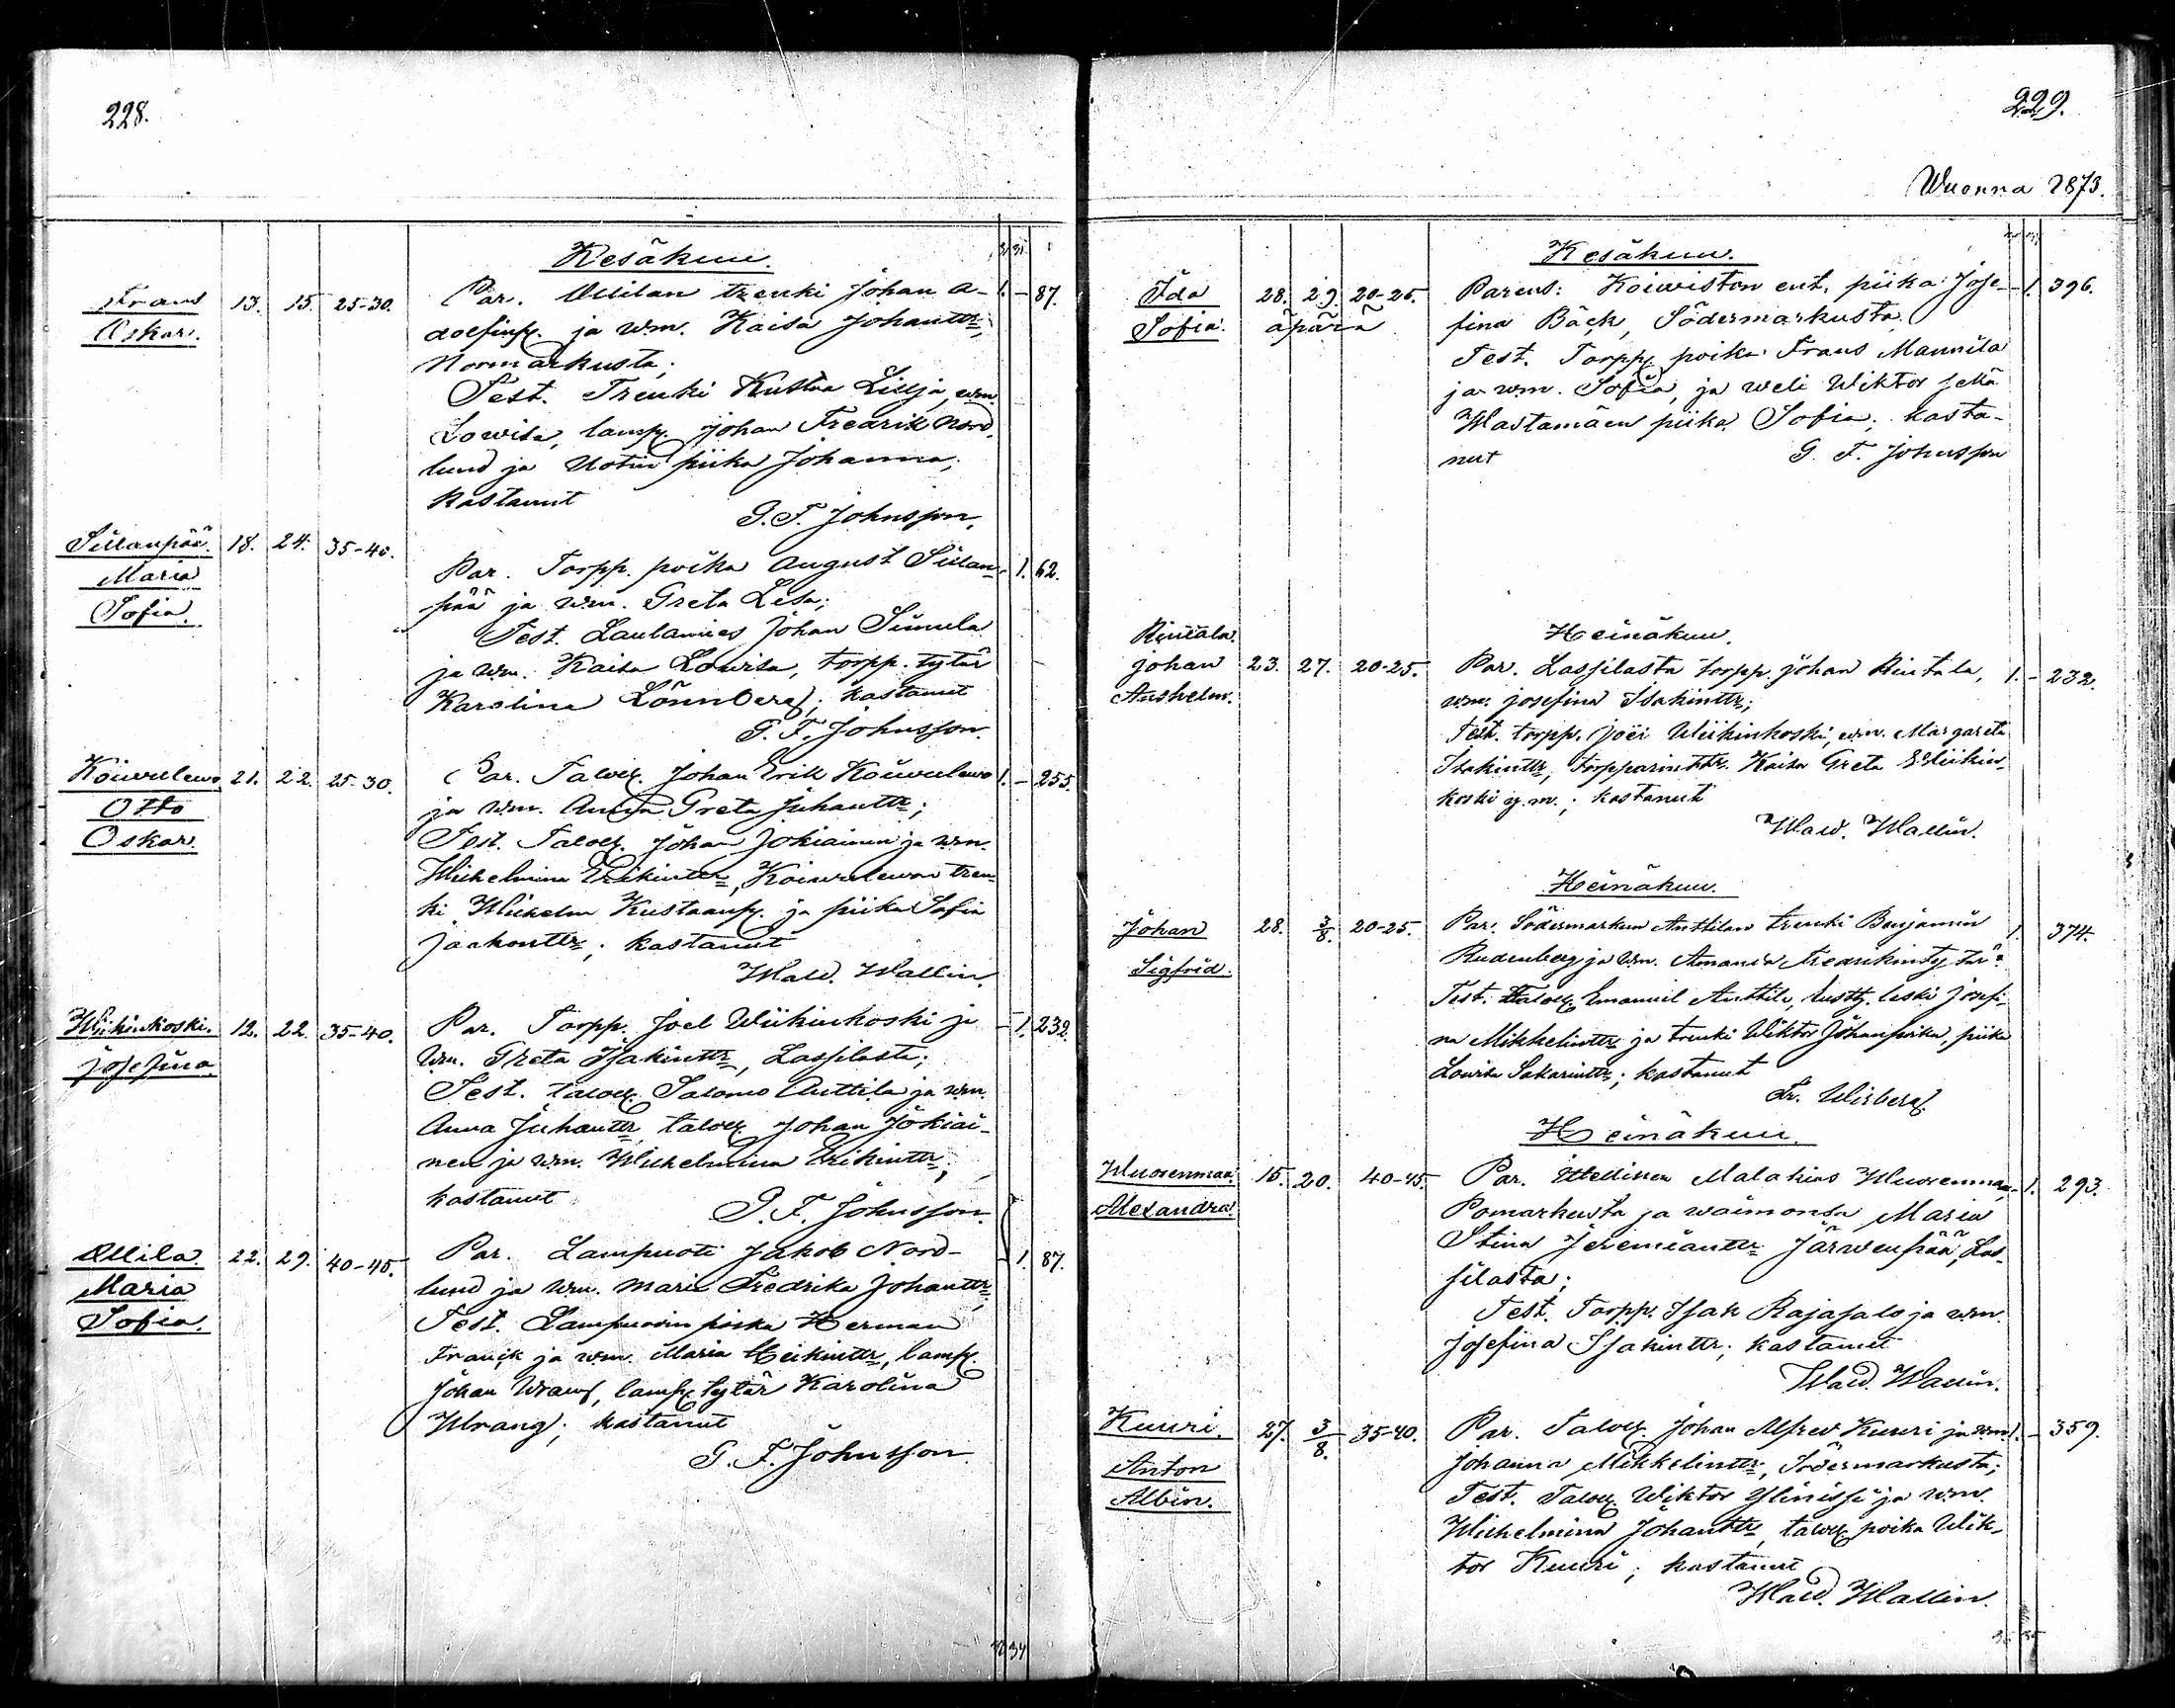 228.
Kesäkuu.
Frans 13. 15. 25-30. Par. Ollilan trenki Johan A- 1. - 87.
Oskar. dolfinp. ja wm. Kaisa Johantr,
Normarkusta;
Test. Trenki Kustaa Lilja, wm.
Lowisa, lamp. Johan Fredrik Nord-
lund ja Uotin piika Johanna;
kastanut
G. F. Johnsson.
Sillanpää. 18. 24. 35-40.
Maria Par. Torpp. poika August Sillan- - 1. 62.
Sofia. pää ja wm. Greta Lisa;
Test. Laulamies Johan Simula
ja wm. Kaisa Lowisa, torpp. tytär
Karolina Lönnberg; kastanut
G. F. Johnsson.
Koiwulewo 21. 22. 25-30. Par. Talol. Johan Erik Koiwulewo 1. - 255.
Otto ja wm. Anna Greta Juhantr;
Oskar. Test. Talol. Johan Jokiainen ja wm.
Wilhelmina Erikintr, Koiwulewon tren-
ki Wilhelm Kustaanp. ja piika Sofia
Jaakontr; kastanut
Wald. Wallin.
Wiikinkoski. 12. 22. 35-40. Par. Torpp. Joel Wiikinkoski ja - 1. 232.
Josefina wm. Greta Isakintr, Lassilasta;
Test. talol. Salomo Anttila ja wm.
Anna Juhantr, talol. Johan Jokiai-
nen ja wm. Wilhelmina Erikintr;
kastanut
G. F. Johnsson.
Ollila 22. 29. 40-45. Par. Lampuoti Jakob Nord- - 1. 87.
Maria lund ja wm. Maria Fredrika Johantr;
Sofia. Test. Lampuodin poika Herman
Franck ja wm. Maria Heikintr, lamp.
Johan Wrang, lamp. tytär Karolina
Wrang; kastanut
G. F. Johnsson
32 34
229.
Wuonna 1873.
Kesäkuu.
Ida 28. 29. 20-25. Parens: Koiwiston ent. piika Jose- - 1. 396.
Sofia. äpärä fina Bäck, Södermarkusta.
Test. Torpp. poika Frans Mannila
ja wm. Sofia, ja weli Wiktor sekä
Wastamäen piika Sofia; kasta-
nut G. F. Johnsson
Heinäkuu.
Rintala.
Johan 23. 27. 20-25. Par. Lassilasta torpp. Johan Rintala, 1. - 232.
Anshelm. wm. Josefina Isakintr;
Test. torpp. Joel Wiikinkoski, wm. Margareta
Isakintr, torpparintr. Kaisa Greta Wiikin-
koski y.m.; kastanut
Wald. Wallin.
Heinäkuu.
Johan 28. 3/8. 20-25. Par. Södermarkun Anttilan trenki Benjamin 1. 374.
Sigfrid. Rudenberg ja wm. Amanda Fredrikintytär:
Test. Talol. Emanuel Anttila, leski Josefi-
na Mikkelintr ja trenki Wiktor Johanpoika, piika
Lowisa Sakarintr; kastanut
Fr. Wirberg.
Heinäkuu.
Wuorenmaa. 15. 20. 40-45. Par. Itsellinen Malakias Wuorenmaa, - 1. 293.
Alexandra. Pomarkusta ja waimonsa Maria
Stina Jeremiantr Järwenpää, Las-
silasta;
Test. Torpp. Isak Rajasalo ja wm.
Josefina Isakintr; kastanut
Wald. Wallin.
Kuuri. 27. 3/8. 35-40. Par. Talol. Johan Alfred Kuuri ja wm. 1. - 359.
Anton Johanna Mikkelintr, Södermarkusta;
Albin. Test. Talol. Wiktor Ylinissi ja wm.
Wilhelmina Johantr, talol. poika Wik-
tor Kuuri; kastanut
Wald. Wallin.